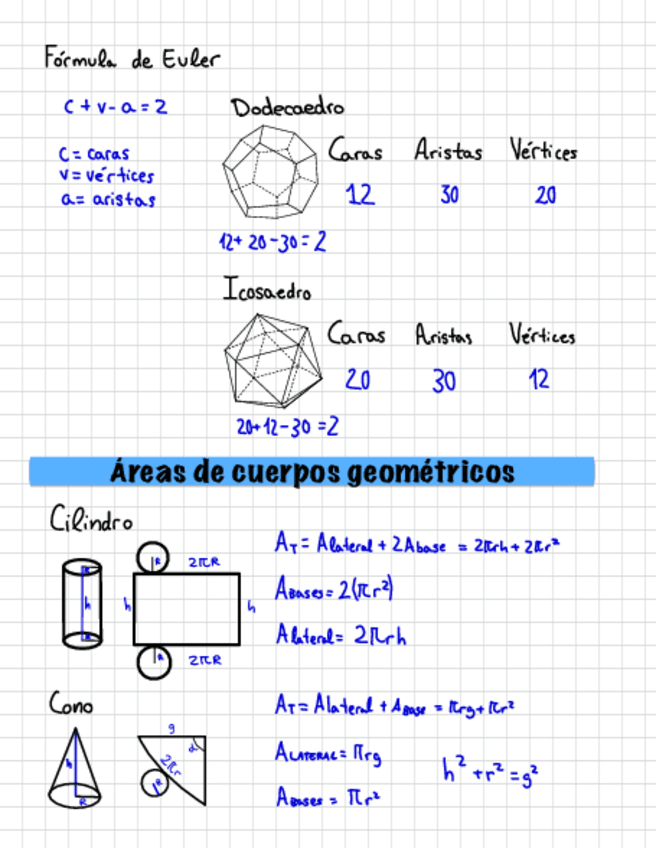 Fórmula de Euler
C + v - a = 2
Dodecaedro
C = caras
v = vértices
a = aristas
Caras Aristas Vértices
12 30 20
12 + 20 - 30 = 2
Icosaedro
Caras Aristas Vértices
20 30 12
20 + 12 - 30 = 2
Áreas de cuerpos geométricos
Cilindro
R
h
R
R
2πR
h
h
R
2πR
A_T = Alateral + 2Abase = 2πrh + 2πr²
ABases = 2(πr²)
Alateral = 2πrh
Cono
h
R
g
α
2πr
R
A_T = Alateral + ABase = πrg + πr²
ALATERAL = πrg
h² + r² = g²
ABases = πr²